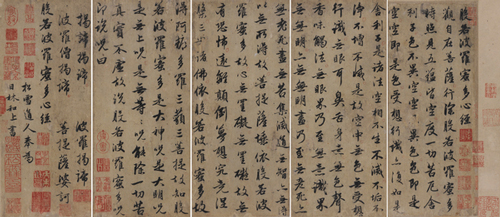 般若波羅蜜多心經
觀自在菩薩行深般若波羅蜜多
時照見五蘊皆空度一切苦厄舍
利子色不異空空不異色色即是
空空即是色受想行識亦復如是
舍利子是諸法空相不生不滅不垢
不淨不增不減是故空中無色無受想
行識無眼耳鼻舌身意無色聲
香味觸法無眼界乃至無意識界
無無明亦無無明盡乃至無老死亦無老
死盡無苦集滅道無智亦無得
以無所得故菩提薩埵依般若
波羅蜜多故心無罣礙無罣礙故無
有恐怖遠離顛倒夢想究竟涅
槃三世諸佛依般若波羅蜜多故
得阿耨多羅三藐三菩提故知般
若波羅蜜多是大神咒是大明咒
是無上咒是無等等咒能除一切苦
真實不虛故說般若波羅蜜多咒
即說咒曰
揭諦揭諦 波羅揭諦
波羅僧揭諦 菩提薩婆訶
般若波羅蜜多心經
松雪道人奉為
日林和上書